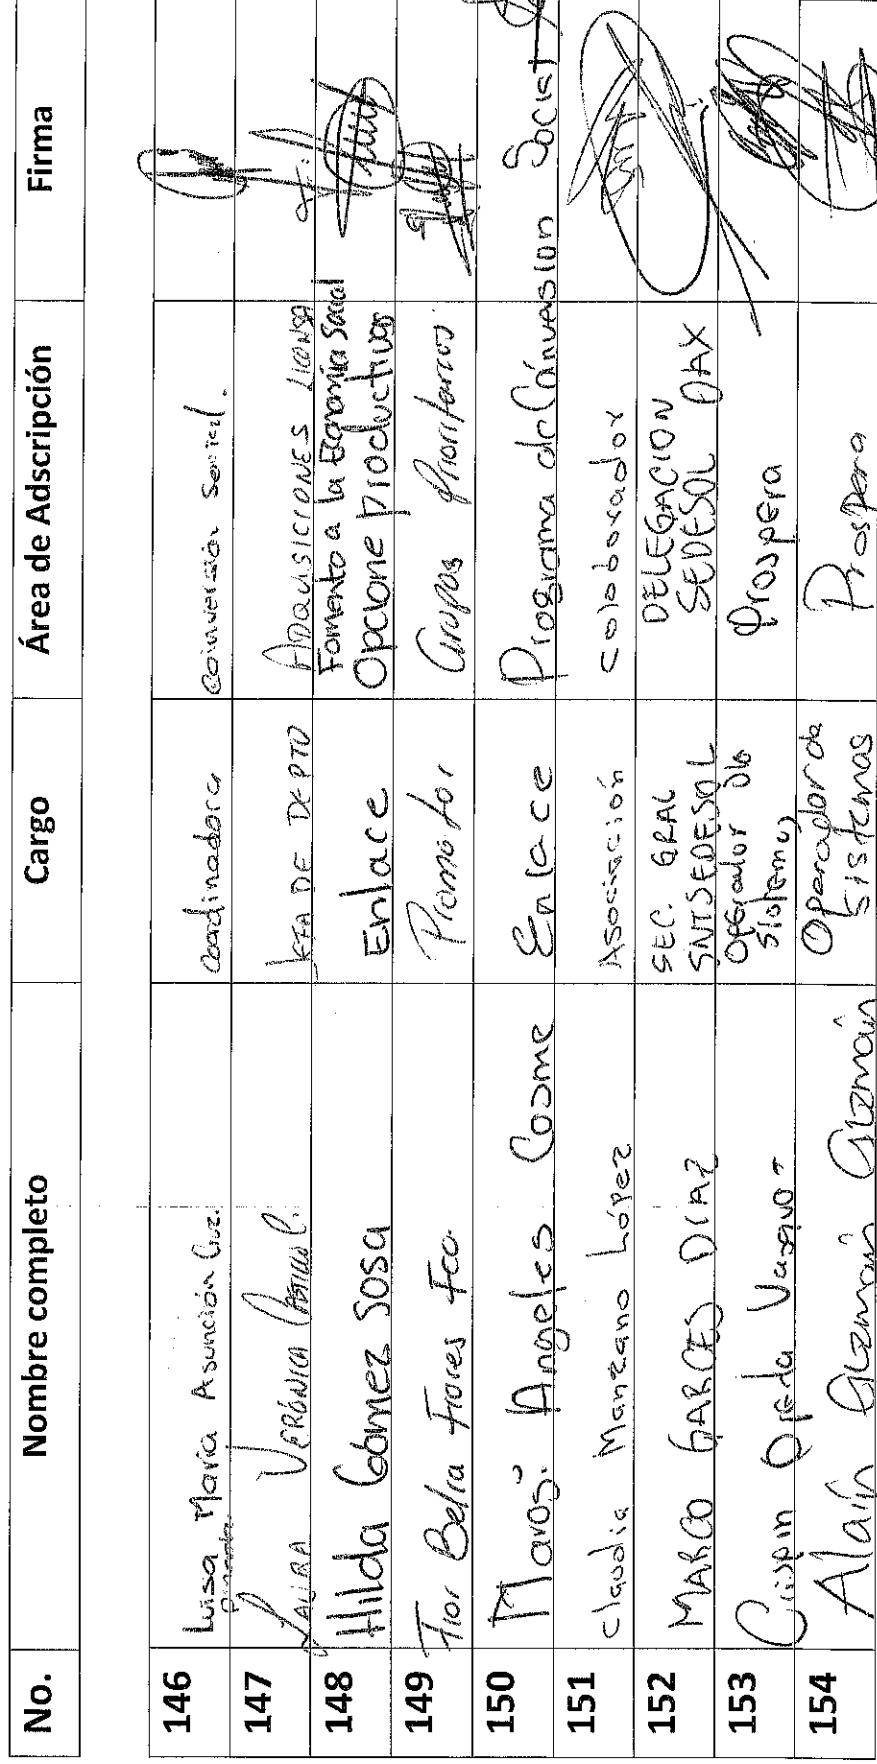 No. Nombre completo Cargo Área de Adscripción Firma
146 Luisa María Asunción Cruz Coordinadora coinversión Social.
147 LAURA VERÓNICA JEFA DE DEPTO ADQUISICIONES LICONSA
148 Hilda Gómez Sosa Enlace Fomento a la Economía Social
Opcione Productivas
149 Flor Belia Flores Fco. Promotor Grupos Prioritarios
150 Angeles Cosme Enlace Programa de Coinvasion Social
151 Claudia Manzano López Asociación colaborador
152 MARCO GARCES DIAZ SEC. GRAL
SNTSEDESOL DELEGACION
SEDESOL OAX
153 Crispin Ojeda Operador de
Sistemas Prospera
154 Alain Guzmán Guzmán Operador de
Sistemas Prospera